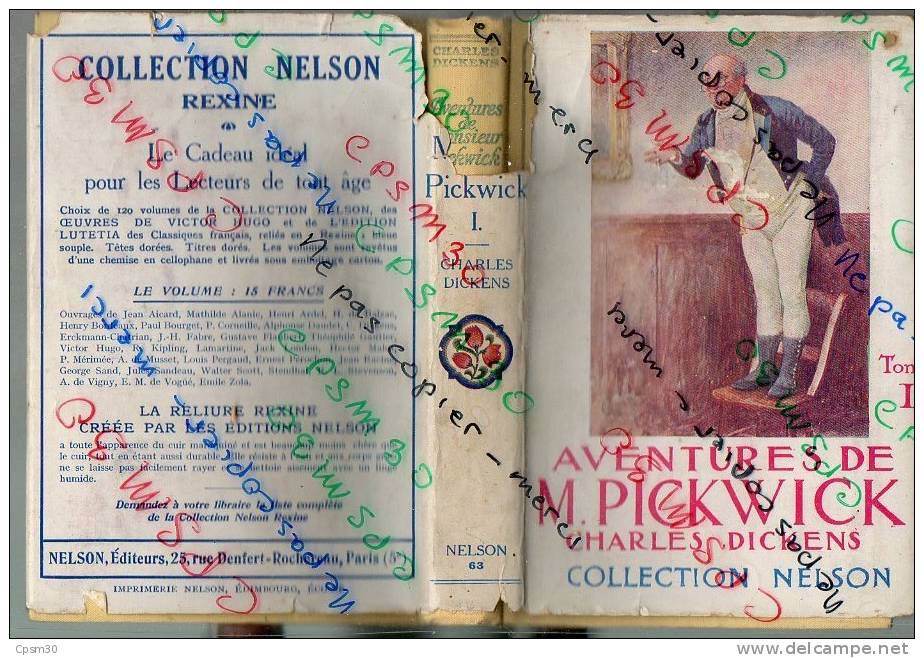 COLLECTION NELSON
REXINE
Le Cadeau idéal
pour les Lecteurs de tout âge
Choix de 120 volumes de la COLLECTION NELSON, des
ŒUVRES DE VICTOR HUGO et de L'ÉDITION
LUTETIA des Classiques français, reliés en Rexine bleue
souple. Têtes dorées. Titres dorés. Les volumes sont vêtus
d'une chemise en cellophane et livrés sous emboîtage carton.
LE VOLUME : 15 FRANCS
Ouvrages de Jean Aicard, Mathilde Alanic, Henri Ardel,
Henry Bordeaux, Paul Bourget, P. Corneille, Alphonse Daudet,
Erckmann-Chatrian, J.-H. Fabre, Gustave Théophile Gautier,
Victor Hugo, R. Kipling, Lamartine, Jack London, Hector
P. Mérimée, A. de Musset, Louis Pergaud, Ernest Jean Racine,
George Sand, Jules Sandeau, Walter Scott, Stendhal, Stevenson,
A. de Vigny, E. M. de Vogüé, Emile Zola.
LA RELIURE REXINE
CRÉÉE PAR LES ÉDITIONS NELSON
a toute l'apparence du cuir maroquiné et est beaucoup moins chère que
le cuir, tout en étant aussi durable. Elle résiste à
ne se laisse pas facilement rayer et se nettoie aisément avec un linge
humide.
Demandez à votre libraire la liste complète
de la Collection Nelson Rexine
NELSON, Éditeurs, 25, rue Denfert-Rochereau, Paris (5
IMPRIMERIE NELSON, ÉDIMBOURG, ÉCO
CHARLES
DICKENS
Aventures
de
Monsieur
Pickwick
M
Pickwick
I.
CHARLES
DICKENS
NELSON.
63
Tom
I
AVENTURES DE
M. PICKWICK
CHARLES DICKENS
COLLECTION NELSON
Ne pas copier - merci
CPSM30
Cpsm30
www.delcampe.net